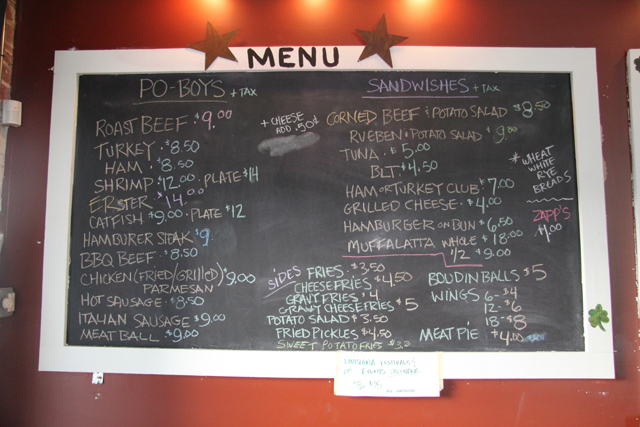 MENU
PO-BOYS + TAX
ROAST BEEF $9.00
+ CHEESE
ADD .50¢
TURKEY $8.50
HAM $8.50
SHRIMP $12.00 PLATE $14
ERSTER $14.00
CATFISH $9.00 PLATE $12
HAMBURER STEAK $9
BBQ BEEF $8.50
CHICKEN (FRIED/GRILLED) $9.00
PARMESAN
HOT SAUSAGE $8.50
ITALIAN SAUSAGE $9.00
MEATBALL $9.00
SANDWISHES + TAX
CORNED BEEF & POTATO SALAD $8.50
RUEBEN & POTATO SALAD $9.00
TUNA $5.00
BLT $4.50
HAM OR TURKEY CLUB $7.00
GRILLED CHEESE $4.00
HAMBURGER ON BUN $6.50
MUFFALATTA WHOLE $18.00
1/2 $9.00
* WHEAT
WHITE
RYE
BREADS
ZAPP'S
$1.00
SIDES
FRIES $3.50
CHEESE FRIES $4.50
GRAVY FRIES $4
GRAVY CHEESE FRIES $5
POTATO SALAD $3.50
FRIED PICKLES $4.50
SWEET POTATO FRIES
BOUDIN BALLS $5
WINGS 6-$4
12-$6
18-$8
MEAT PIE $4.00
LOUISIANA FESTIVALS &
EVENTS CALENDER